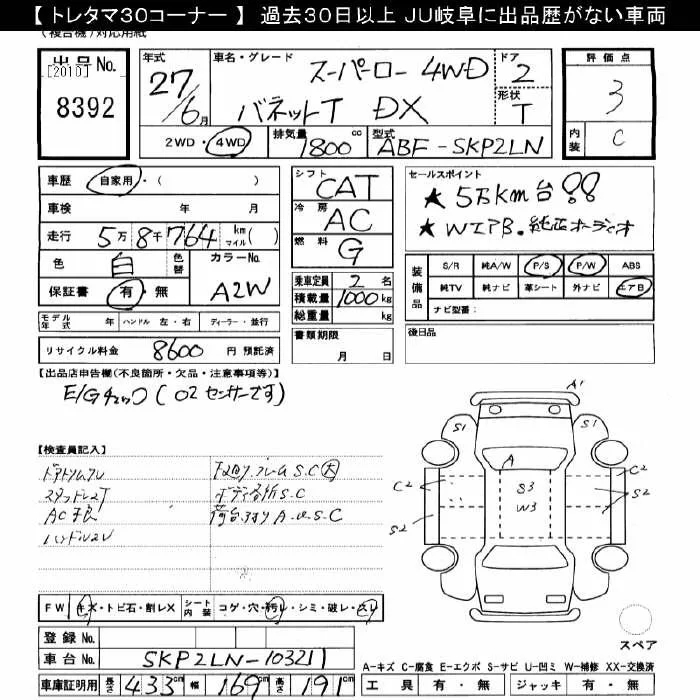 【 トレタマ30コーナー 】 過去30日以上 JU岐阜に出品歴がない車両
(複合機)対応用紙
出品No. [2010]
8392
年式 27/6月
車名・グレード スーパーロー 4WD
バネットT DX
ドア 2
形状 T
2WD・4WD
排気量 1800 cc
型式 ABF-SKP2LN
評価点 3
内装 C
車歴 自家用・( )
車検 年 月
走行 5万8千764 km マイル( )
色 白 色替
カラーNo. A2W
保証書 有・無
モデル年式 年 ハンドル 左・右 ディーラー・並行
リサイクル料金 8600 円 預託済
シフト CAT
冷房 AC
燃料 G
乗車定員 2 名
積載量 1000 kg
総重量 kg
書類期限
月 日
セールスポイント
★5万km台!!
★WエアB.純正オーディオ
装備品 S/R 純A/W P/S P/W ABS
純TV 純ナビ 革シート 外ナビ エアB
ナビ型番:
後日品
【出品店申告欄(不良箇所・欠品・注意事項等)】
E/Gチェック(O2センサーです)
【検査員記入】
AC不良
ボディ各所S.C
FW キズ・トビ石・割レX シート内装 コゲ・穴・汚レ・シミ・破レ・スレ
登録No.
車台No. SKP2LN-103211
車庫証明用 長さ 433 cm 幅 169 cm 高さ 191 cm
A1
S1 S1
A
C2 S3 C2
W3 S2
S2
スペア
A-キズ C-腐食 E-エクボ S-サビ U-凹ミ W-補修 XX-交換済
工具 有・無 ジャッキ 有・無